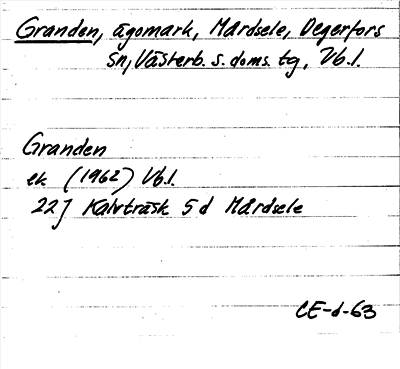 Granden, ägomark, Mårdsele, Degerfors
sn, Västerb. s. doms. tg, Vb.l.
Granden
ek (1962) Vb.l.
22J Kalvträsk 5d Mårdsele
CE-d-63